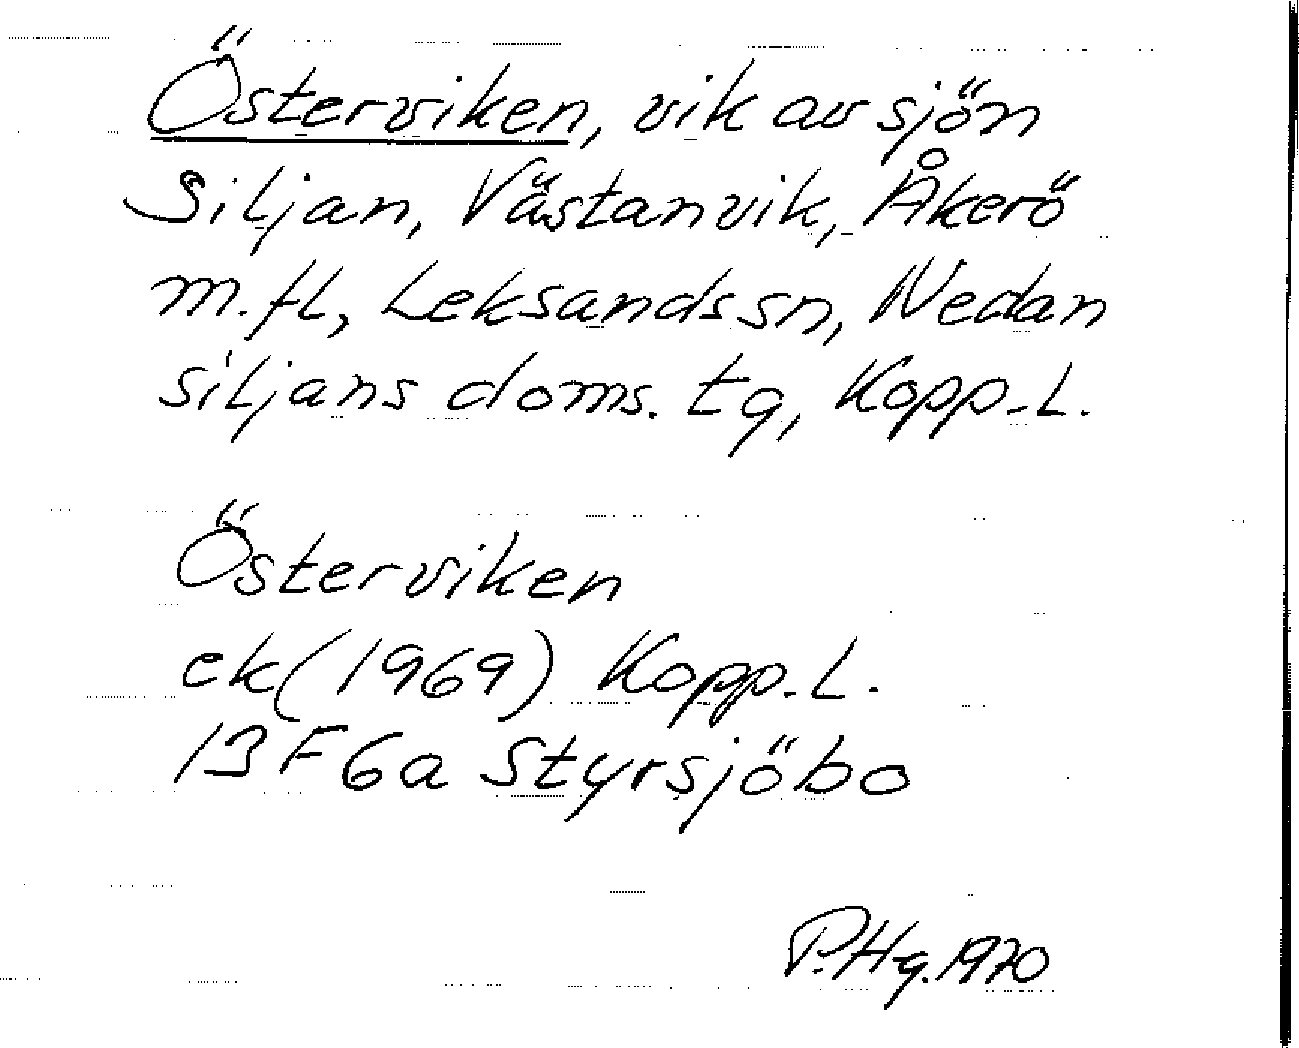 Österviken, vik av sjön
Siljan, Västanvik, Åkerö
m.fl., Leksands sn, Nedan
siljans doms. tg, Kopp. L.
Österviken
ek (1969) Kopp. L.
13 F 6a Styrsjöbo
P. Hg. 1970